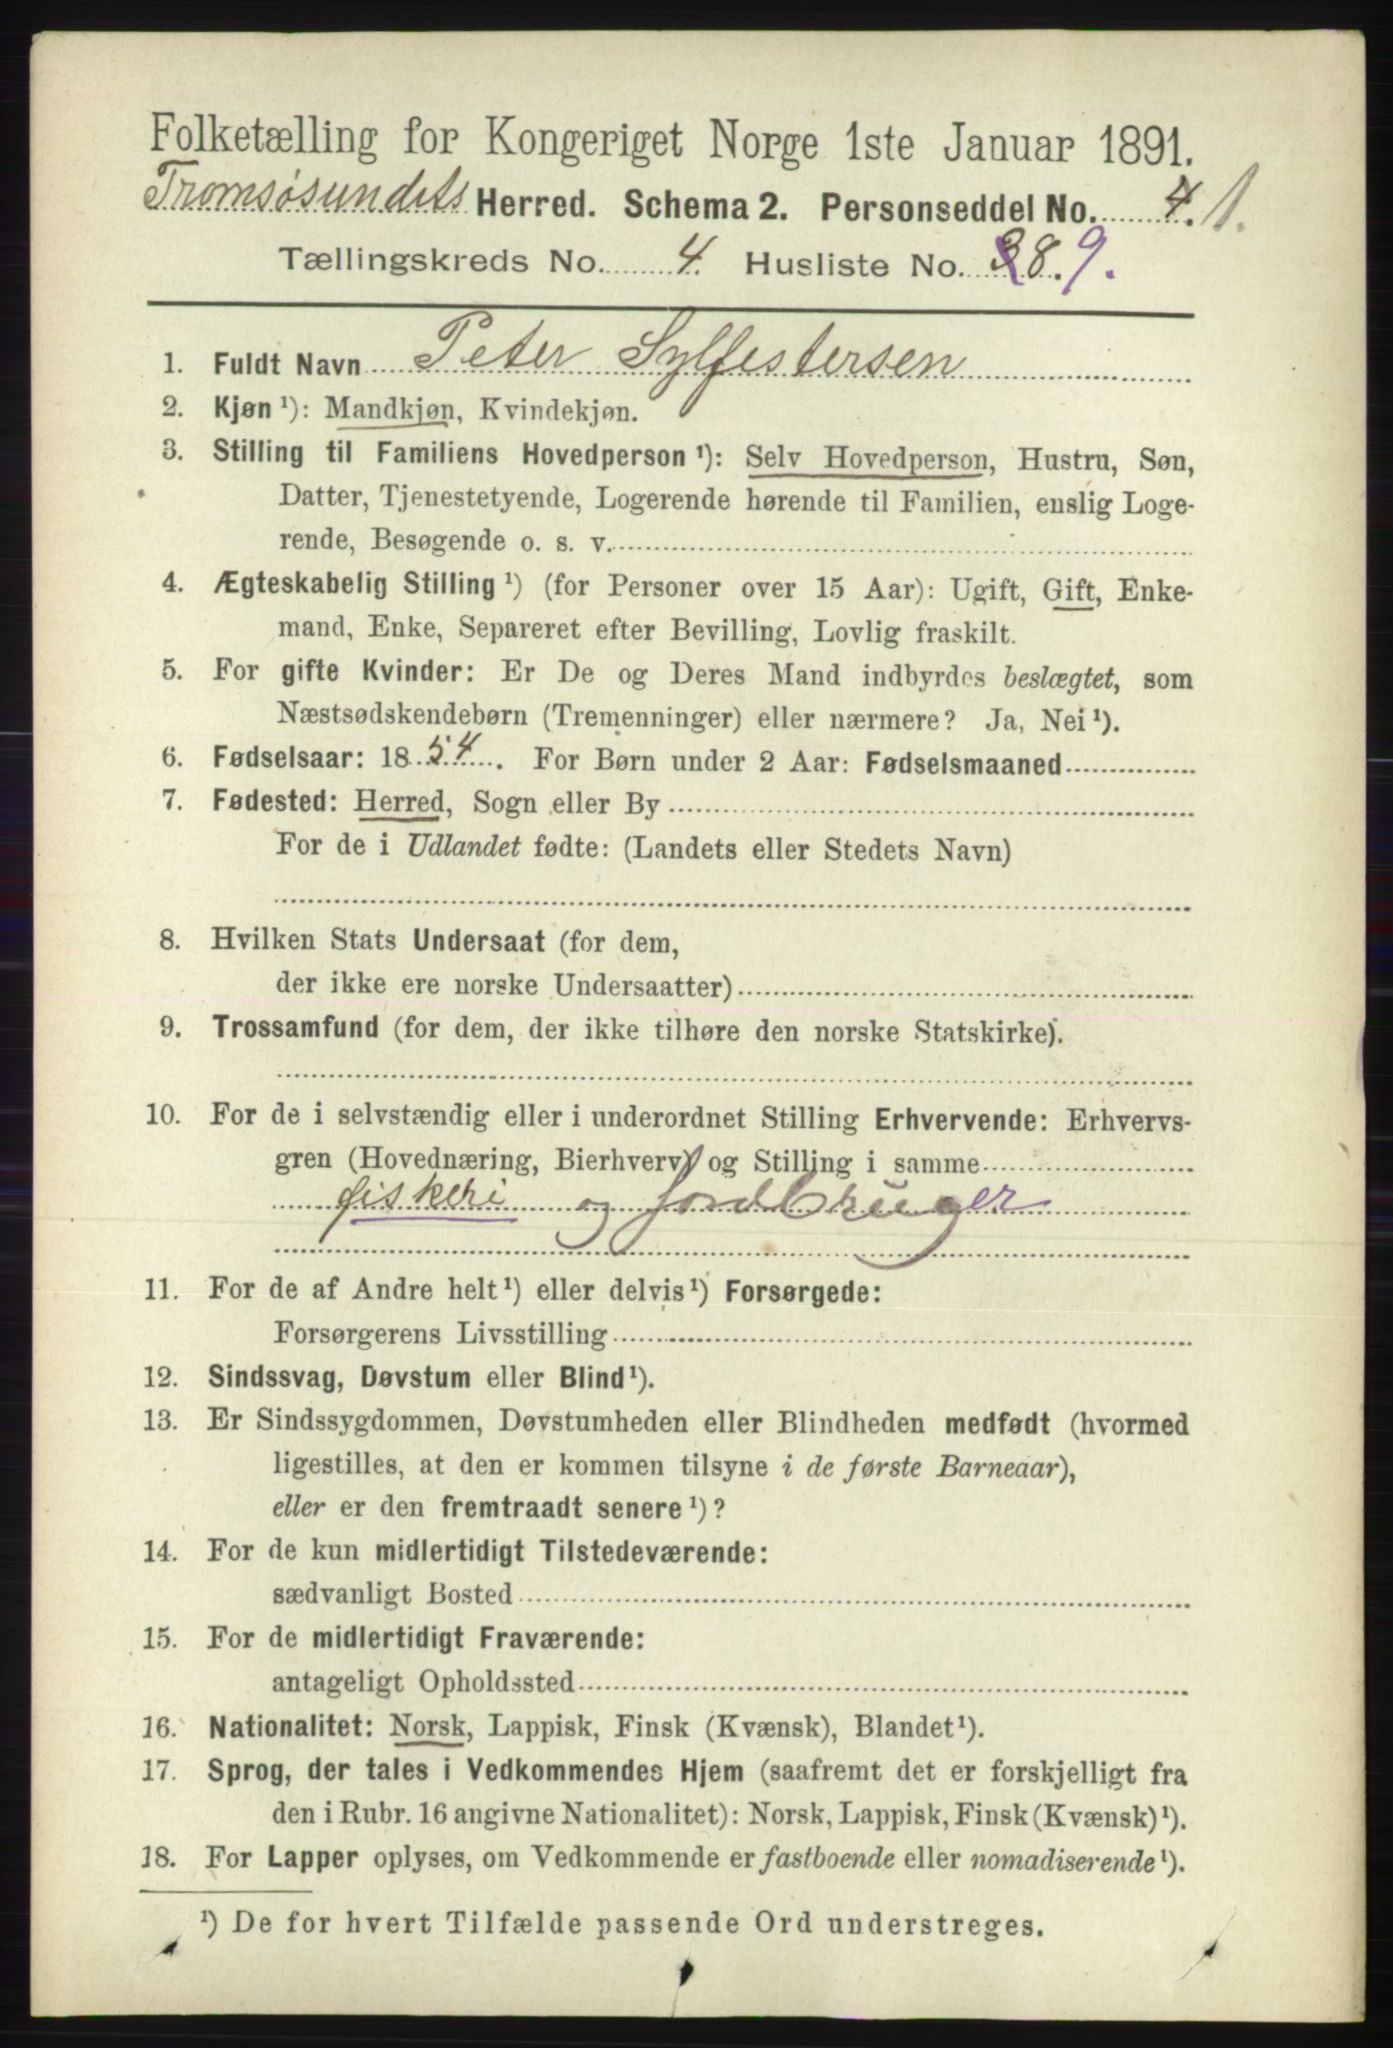 Folketælling for Kongeriget Norge 1ste Januar 1891.
Tromsøsundets Herred. Schema 2. Personseddel No. 4. 1.
Tællingskreds No. 4. Husliste No. 38. 9.
1. Fuldt Navn Peter Sylfestersen
2. Kjøn ¹): Mandkjøn, Kvindekjøn.
3. Stilling til Familiens Hovedperson ¹): Selv Hovedperson, Hustru, Søn,
Datter, Tjenestetyende, Logerende hørende til Familien, enslig Loge-
rende, Besøgende o. s. v.
4. Ægteskabelig Stilling ¹) (for Personer over 15 Aar): Ugift, Gift, Enke-
mand, Enke, Separeret efter Bevilling, Lovlig fraskilt.
5. For gifte Kvinder: Er De og Deres Mand indbyrdes beslægtet, som
Næstsødskendebørn (Tremenninger) eller nærmere? Ja, Nei ¹).
6. Fødselsaar: 1854. For Børn under 2 Aar: Fødselsmaaned
7. Fødested: Herred, Sogn eller By
For de i Udlandet fødte: (Landets eller Stedets Navn)
8. Hvilken Stats Undersaat (for dem,
der ikke ere norske Undersaatter)
9. Trossamfund (for dem, der ikke tilhøre den norske Statskirke).
10. For de i selvstændig eller i underordnet Stilling Erhvervende: Erhvervs-
gren (Hovednæring, Bierhverv) og Stilling i samme
fiskeri og Jordbruger
11. For de af Andre helt ¹) eller delvis ¹) Forsørgede:
Forsørgerens Livsstilling
12. Sindssvag, Døvstum eller Blind ¹).
13. Er Sindssygdommen, Døvstumheden eller Blindheden medfødt (hvormed
ligestilles, at den er kommen tilsyne i de første Barneaar),
eller er den fremtraadt senere ¹)?
14. For de kun midlertidigt Tilstedeværende:
sædvanligt Bosted
15. For de midlertidigt Fraværende:
antageligt Opholdssted
16. Nationalitet: Norsk, Lappisk, Finsk (Kvænsk), Blandet ¹).
17. Sprog, der tales i Vedkommendes Hjem (saafremt det er forskjelligt fra
den i Rubr. 16 angivne Nationalitet): Norsk, Lappisk, Finsk (Kvænsk) ¹).
18. For Lapper oplyses, om Vedkommende er fastboende eller nomadiserende ¹).
¹) De for hvert Tilfælde passende Ord understreges.